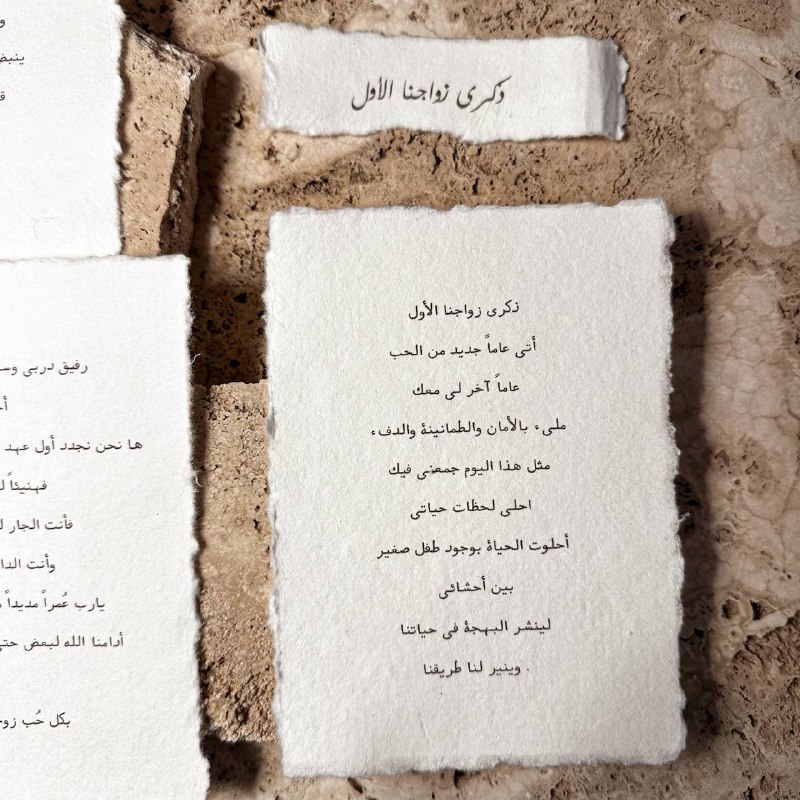 ذكرى زواجنا الأول
ذكرى زواجنا الأول
أتى عاماً جديد من الحب
عاماً آخر لى معك
ملىء بالأمان والطمانينة والدفء
مثل هذا اليوم جمعنى فيك
احلى لحظات حياتى
أحلوت الحياة بوجود طفل صغير
بين أحشائى
لينشر البهجة فى حياتنا
وينير لنا طريقنا .
رفيق دربى
ها نحن نجدد أول عهد
فهنيئاً
فأنت الجار
وأنت
يارب عُمراً مديداً
أدامنا الله لبعض
بكل حُب